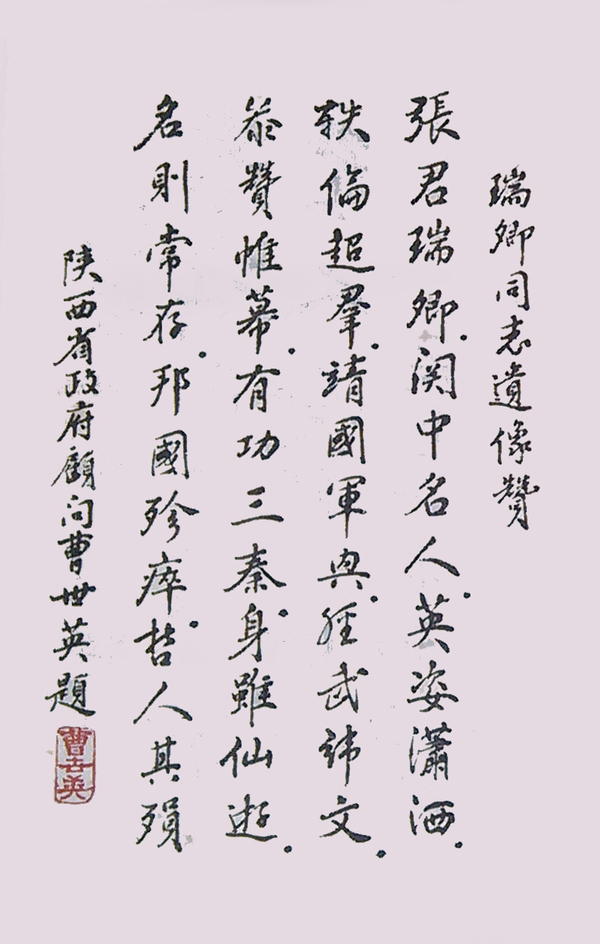 瑞卿同志遺像贊
張君瑞卿。関中名人。英姿瀟洒。
軼倫超羣。靖國軍興。經武緯文。
叅贊帷幕。有功三秦。身雖仙遊。
名則常存。邦國殄瘁哲人其殞
陝西省政府顧问曹世英題
曹世英